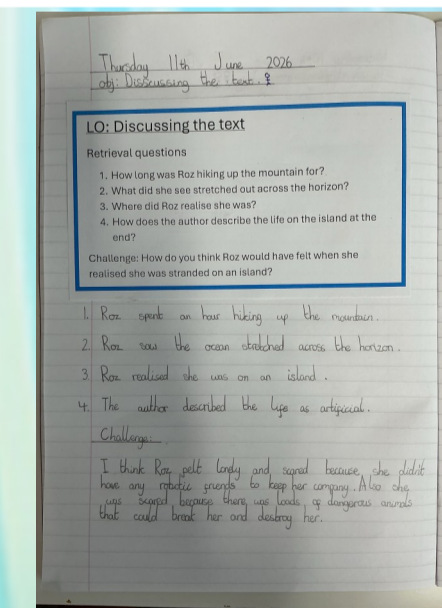 Thursday 11th June 2026
obj: Disscussing the text.
LO: Discussing the text
Retrieval questions
1. How long was Roz hiking up the mountain for?
2. What did she see stretched out across the horizon?
3. Where did Roz realise she was?
4. How does the author describe the life on the island at the
end?
Challenge: How do you think Roz would have felt when she
realised she was stranded on an island?
1. Roz spent an hour hiking up the mountain.
2. Roz saw the ocean stretched across the horizon.
3. Roz realised she was on an island.
4. The author described the life as artificial.
Challenge:
I think Roz felt lonely and scared because she didn't
have any robotic friends to keep her company. Also she
was scared because there was loads of dangerous animals
that could break her and destroy her.